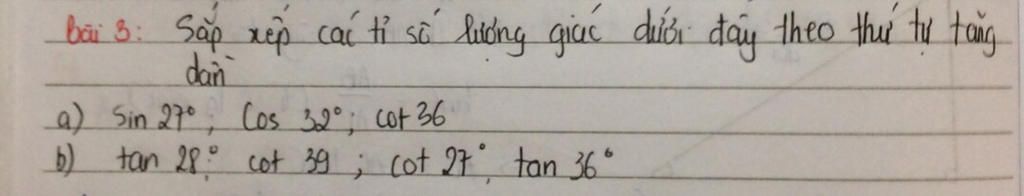 bài 3: Sắp xếp các tỉ số lượng giác dưới đây theo thứ tự tăng
dần
a) sin 27°; Cos 32°; cot 36
b) tan 28°; cot 39 ; cot 27°, tan 36°